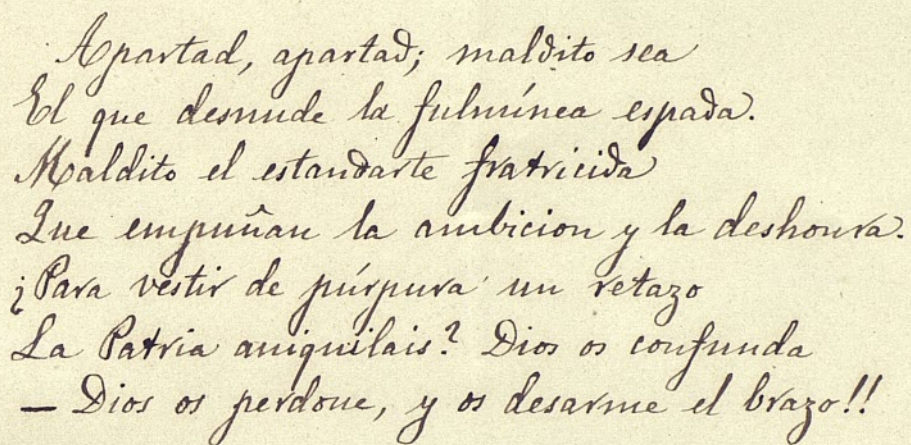 Apartad, apartad; maldito sea
El que desnude la fulmínea espada.
Maldito el estandarte fratricida
Que empuñan la ambicion y la deshonra.
¡Para vestir de púrpura un retazo
La Patria aniquilais? Dios os confunda
— Dios os perdone, y os desarme el brazo!!